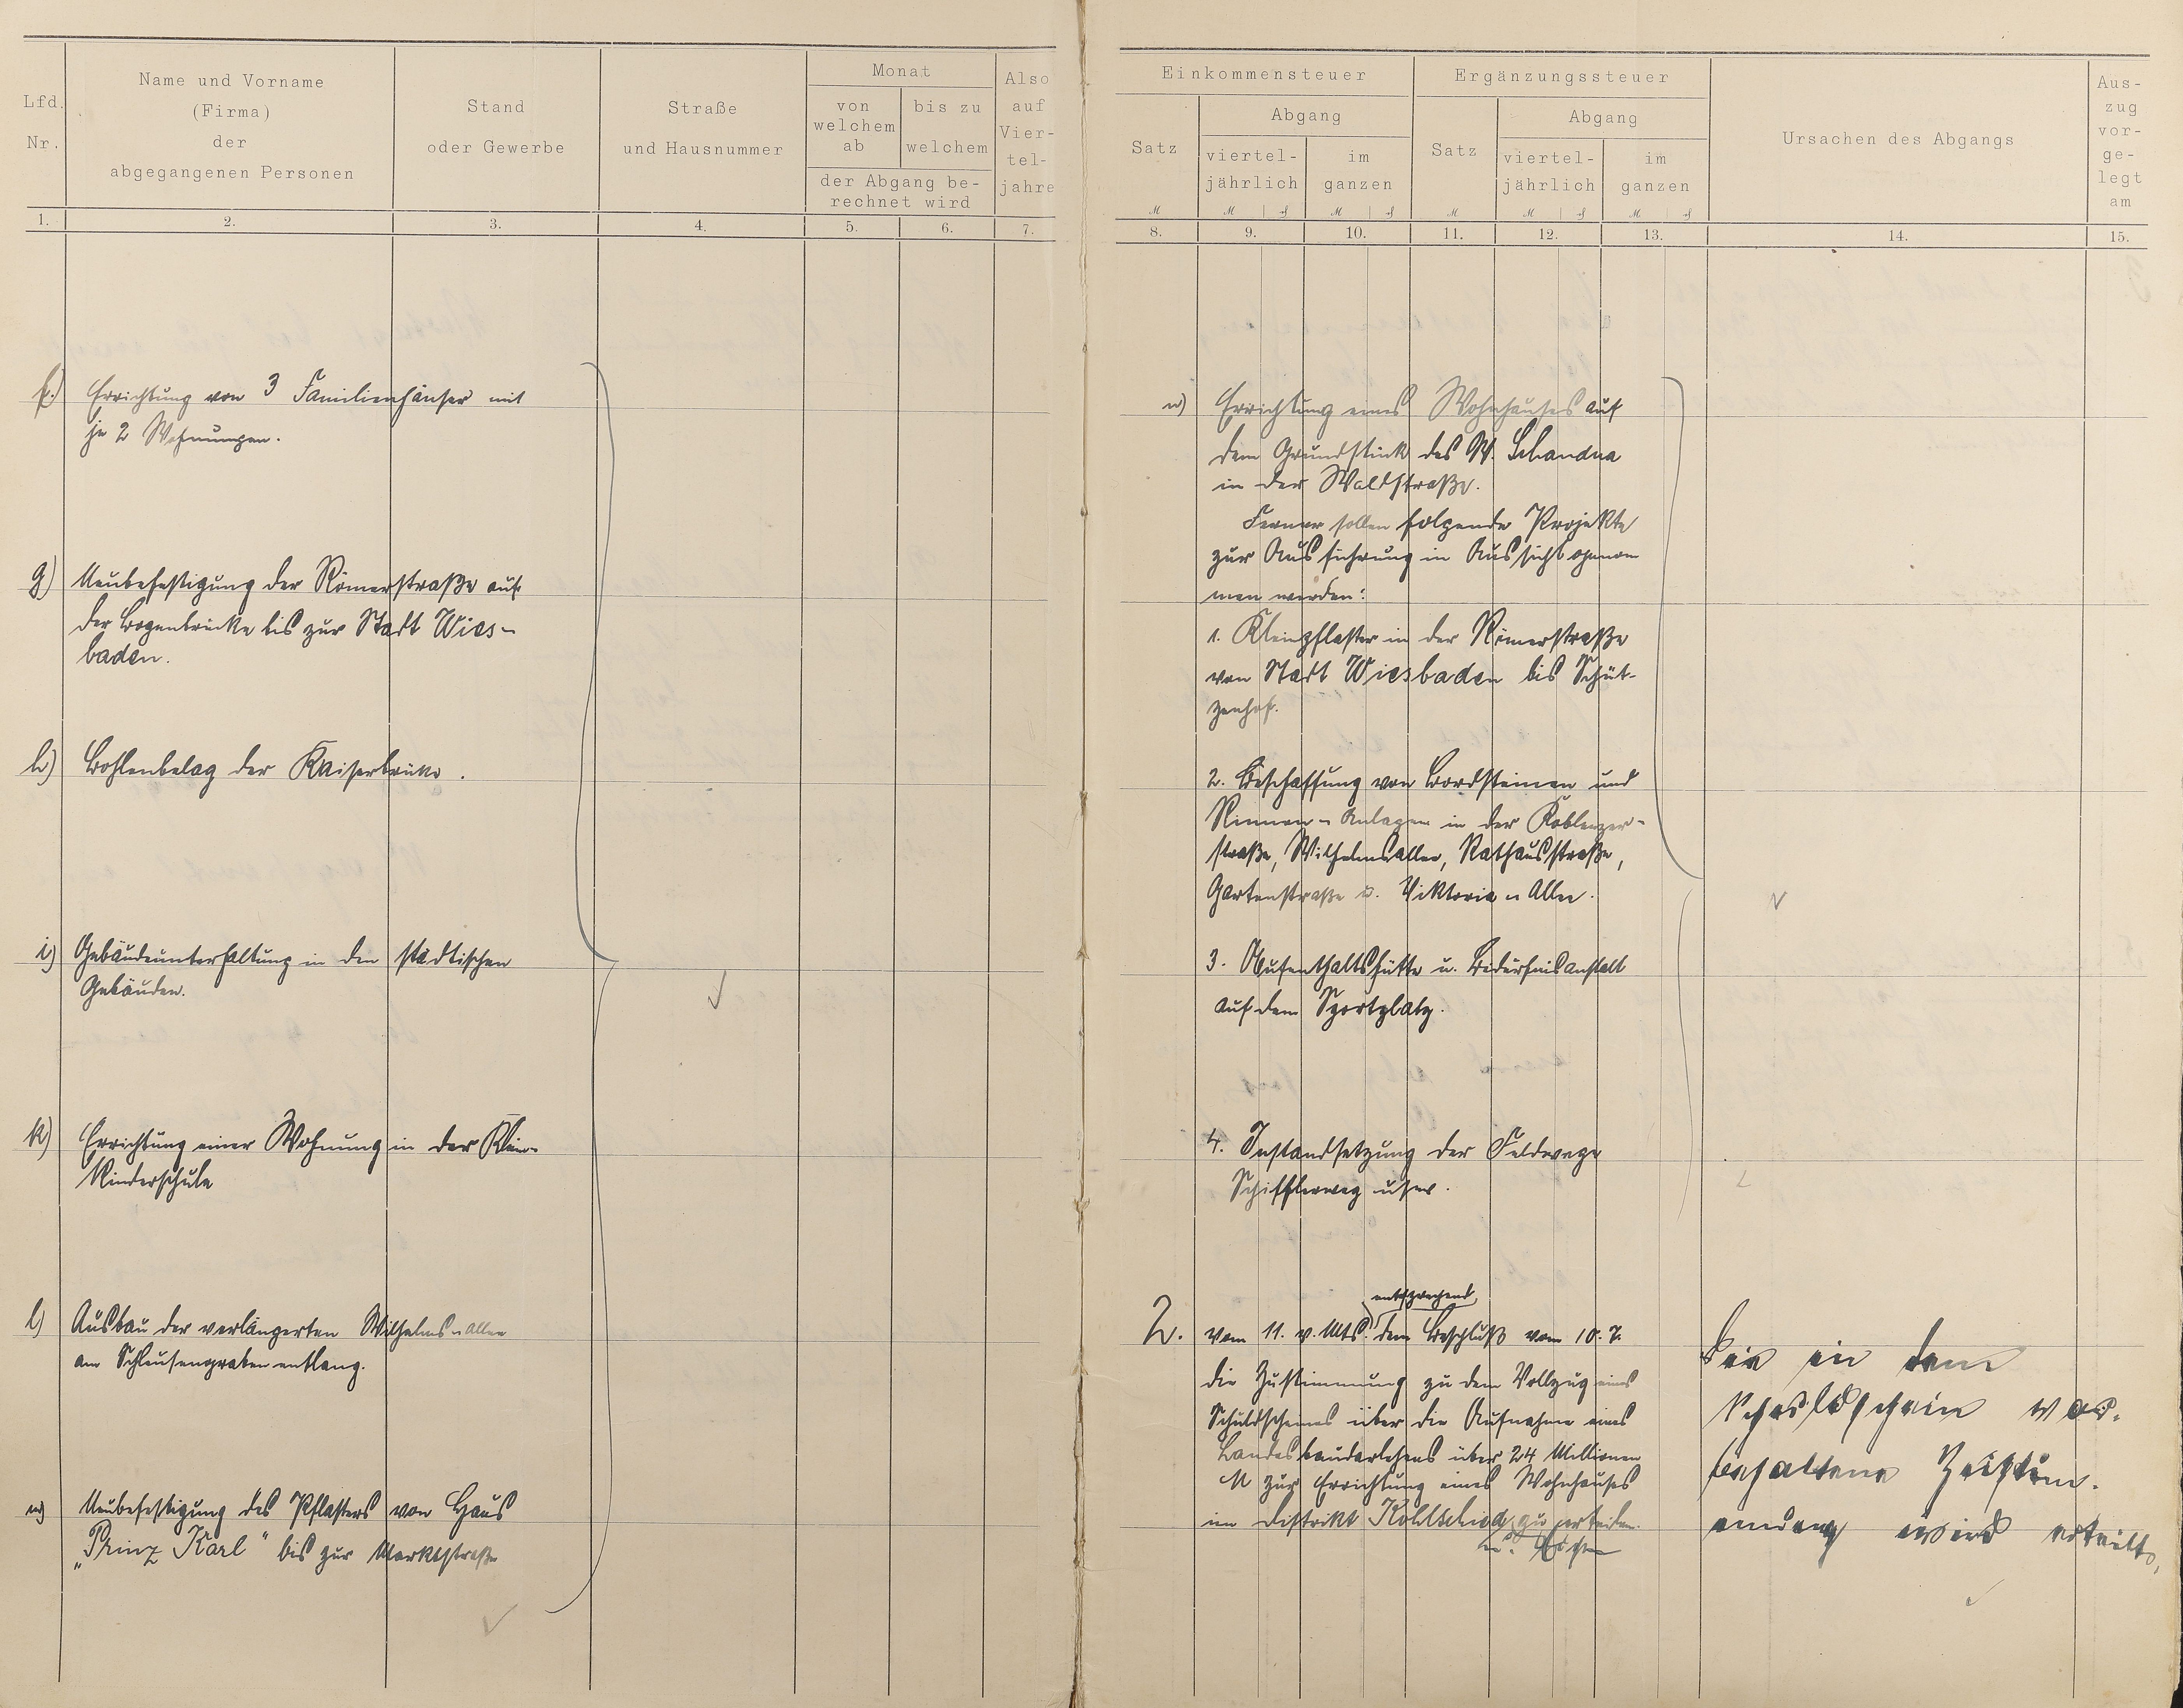 Lfd. Nr.
Name und Vorname
(Firma)
der
abgegangenen Personen
Stand
oder Gewerbe
Straße
und Hausnummer
Monat
von welchem ab
bis zu welchem
der Abgang be-
rechnet wird
Also auf Vier-
tel-
jahre
1. 2. 3. 4. 5. 6. 7.
f.) Errichtung von 3 Familienhäuser mit
je 2 Wohnungen.
g) Neubefestigung der Römerstraße auf
der Bogenbrücke bis zur Stadt Wies-
baden.
h) Bohlenbelag der Kaiserbrücke.
i) Gebäudeunterhaltung in den städtischen
Gebäuden.
k) Errichtung einer Wohnung in der Klein-
Kinderschule
l) Ausbau der verlängerten Wilhelms-Allee
am Schleusengraben entlang.
m) Neubefestigung des Pflasters von Haus
„Prinz Karl" bis zur Marktstraße
Einkommensteuer
Satz
Abgang
viertel-
jährlich
im
ganzen
Ergänzungssteuer
Satz
Abgang
viertel-
jährlich
im
ganzen
Ursachen des Abgangs
Aus-
zug
vor-
ge-
legt
am
8. 9. 10. 11. 12. 13. 14. 15.
n) Errichtung eines Wohnhauses auf
dem Grundstück des W. Schandua
in der Waldstraße.
Ferner sollen folgende Projekte
zur Ausführung in Aussicht genom
men werden:
1. Kleinpflaster in der Römerstraße
von Stadt Wiesbaden bis Schüt-
zenhof.
2. Beschaffung von Bordsteinen und
Rinnen-Anlagen in der Koblenzer-
straße, Wilhelmsallee, Rathausstraße,
Gartenstraße u. Viktoria-Allee.
3. Aufenthaltshütte u. Bedürfnisanstalt
auf dem Sportplatz.
4. Instandsetzung der Feldwege
Schifflerweg usw.
entsprechend
2. vom 11. v. Mts. dem Beschluß vom 10. 7.
die Zustimmung zu dem Vollzug eines
Schuldscheines über die Aufnahme eines
Landesbaudarlehens über 24 Millionen
M zur Errichtung eines Wohnhauses
im Distrikt zu erteilen.
Die in dem
Schuldschein vor-
behaltene Zustim-
mung wird erteilt,